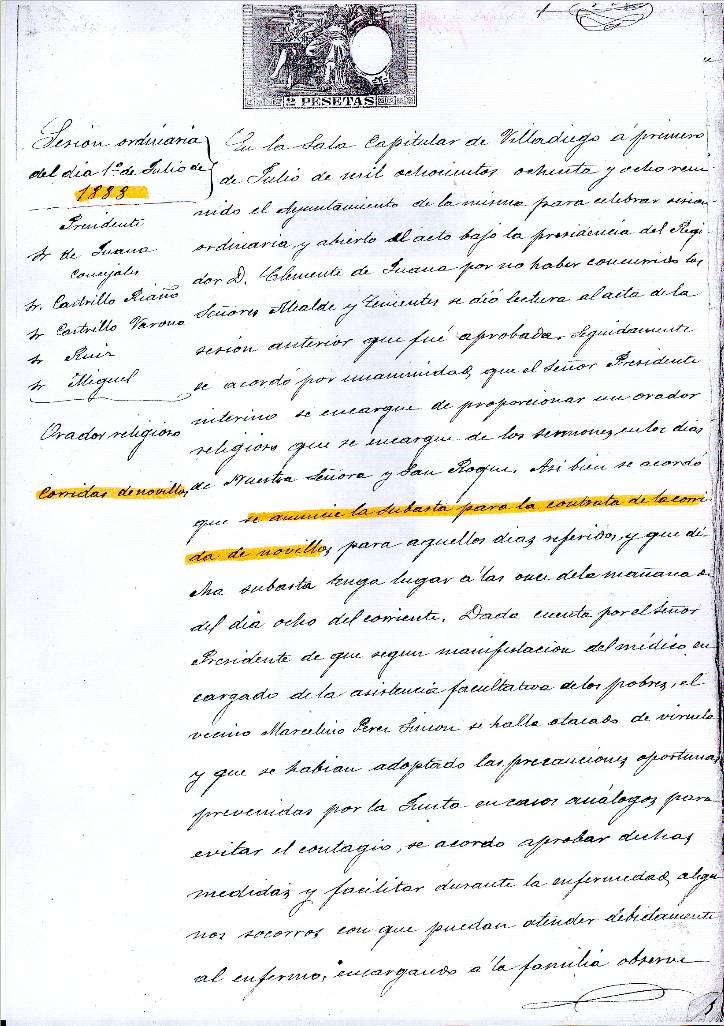 2 PESETAS
Sesion ordinaria
del dia 1º de Julio de
1888
Presidente
Sr de Juana
Concejales
Sr. Castrillo Riaño
Sr Castrillo Varona
Sr Ruiz
Sr Miguel
Orador religioso
Corridas de novillos
En la Sala Capitular de Villadiego á primero
de Julio de mil ochocientos ochenta y ocho reu
nido el Ayuntamiento de la misma para celebrar sesion
ordinaria y abierto el acto bajo la presidencia del Regi
dor D. Clemente de Juana por no haber concurrido los
Señores Alcalde y Tenientes se dió lectura al acta de la
sesion anterior que fué aprobada. Seguidamente
se acordó por unanimidad, que el Señor Presidente
interino se encargue de proporcionar un orador
religioso que se encargue de los sermones en los dias
de Nuestra Señora y San Roque. Asi bien se acordó
que se anuncie la subasta para la contrata de la corri
da de novillos para aquellos dias referidos, y que di
cha subasta tenga lugar á las once de la mañana
del dia ocho del corriente. Dada cuenta por el Señor
Presidente de que segun manifestacion del médico en
cargado de la asistencia facultativa de los pobres, el
vecino Marcelino Perez Simon se halla atacado de viruela
y que se habian adoptado las precauciones oportunas
prevenidas por la Junta en casos análogos, para
evitar el contagio, se acordo aprobar dichas
medidas y facilitar durante la enfermedad, algu
nos socorros con que puedan atender debidamente
al enfermo, encargando á la familia observe